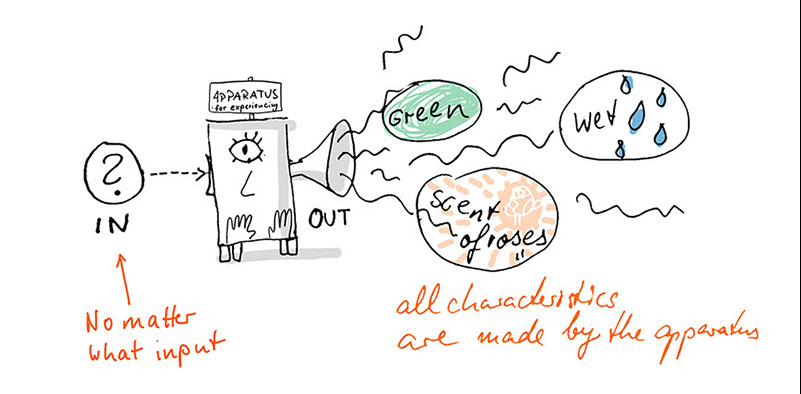 APPARATUS
for experiencing
Green
wet
?
scent
of roses
IN
OUT
No matter
what input
all characteristics
are made by the apparatus